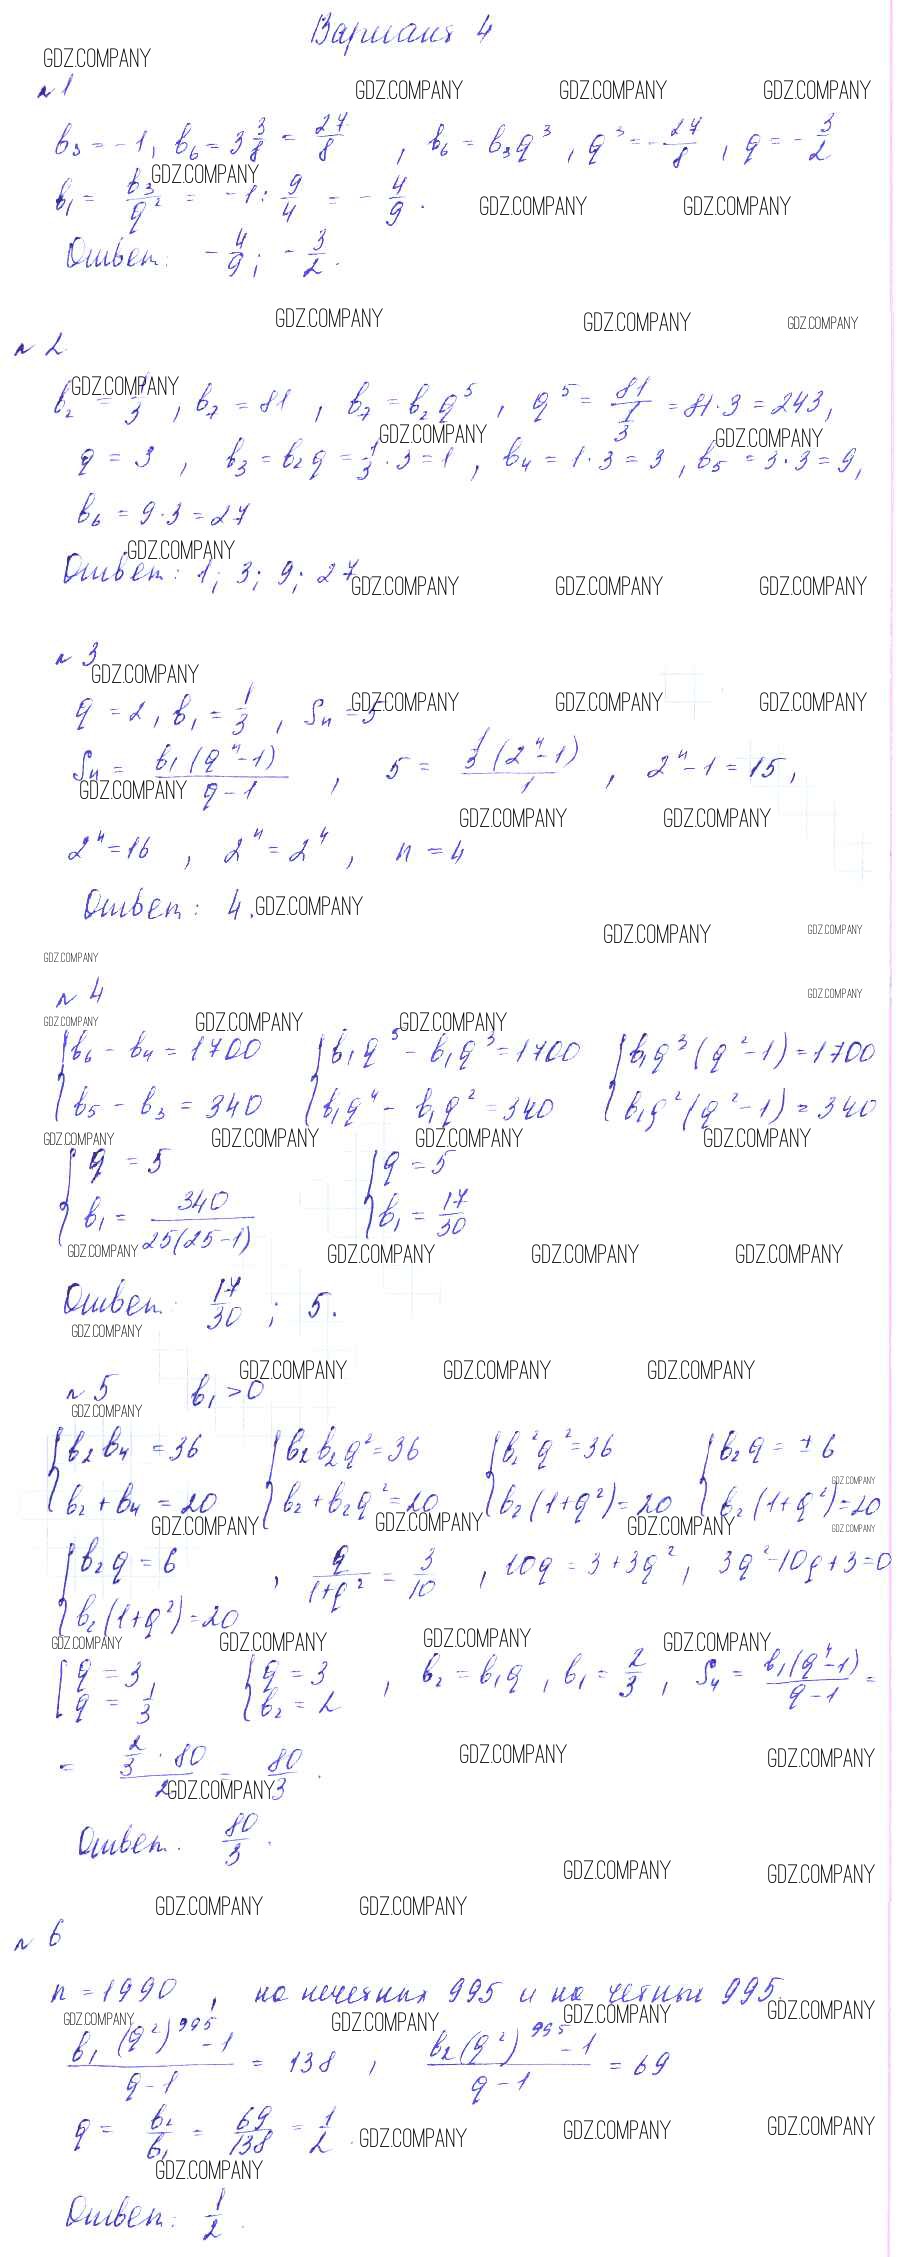 Вариант 4
GDZ.COMPANY
№1
GDZ.COMPANY GDZ.COMPANY GDZ.COMPANY
b₃ = -1, b₆ = 3 3/8 = 27/8, b₆ = b₃q³, q³ = -27/8, q = -3/2
GDZ.COMPANY
b₁ = b₃/q² = -1 : 9/4 = -4/9.
GDZ.COMPANY GDZ.COMPANY
Ответ: -4/9; -3/2.
GDZ.COMPANY GDZ.COMPANY GDZ.COMPANY
№2
GDZ.COMPANY
b₂ = 1/3, b₇ = 81, b₇ = b₂q⁵, q⁵ = 81/(1/3) = 81·3 = 243,
GDZ.COMPANY GDZ.COMPANY
q = 3, b₃ = b₂q = 1/3·3 = 1, b₄ = 1·3 = 3, b₅ = 3·3 = 9,
b₆ = 9·3 = 27
GDZ.COMPANY
Ответ: 1; 3; 9; 27
GDZ.COMPANY GDZ.COMPANY GDZ.COMPANY
№3
GDZ.COMPANY
q = 2, b₁ = 1/3, Sn = 5
GDZ.COMPANY GDZ.COMPANY GDZ.COMPANY
Sn = b₁(qⁿ-1)/(q-1), 5 = 1/3(2ⁿ-1)/1, 2ⁿ-1 = 15,
GDZ.COMPANY
GDZ.COMPANY GDZ.COMPANY
2ⁿ = 16, 2ⁿ = 2⁴, n = 4
Ответ: 4.
GDZ.COMPANY
GDZ.COMPANY GDZ.COMPANY
GDZ.COMPANY
№4
GDZ.COMPANY
GDZ.COMPANY GDZ.COMPANY GDZ.COMPANY
{b₆ - b₄ = 1700 {b₁q⁵ - b₁q³ = 1700 {b₁q³(q²-1) = 1700
{b₅ - b₃ = 340 {b₁q⁴ - b₁q² = 340 {b₁q²(q²-1) = 340
GDZ.COMPANY GDZ.COMPANY GDZ.COMPANY GDZ.COMPANY
{q = 5 {q = 5
{b₁ = 340/25(25-1) {b₁ = 17/30
GDZ.COMPANY GDZ.COMPANY GDZ.COMPANY GDZ.COMPANY
Ответ: 17/30; 5.
GDZ.COMPANY
GDZ.COMPANY GDZ.COMPANY GDZ.COMPANY
№5 b₁ > 0
GDZ.COMPANY
{b₂b₄ = 36 {b₂b₂q² = 36 {b₂²q² = 36 {b₂q = ±6
GDZ.COMPANY
{b₂ + b₄ = 20 {b₂ + b₂q² = 20 {b₂(1+q²) = 20 {b₂(1+q²) = 20
GDZ.COMPANY GDZ.COMPANY GDZ.COMPANY GDZ.COMPANY
{b₂q = 6 , q/(1+q²) = 3/10, 10q = 3+3q², 3q²-10q+3=0
{b₂(1+q²) = 20
GDZ.COMPANY GDZ.COMPANY GDZ.COMPANY GDZ.COMPANY
[q = 3, {q = 3 , b₂ = b₁q, b₁ = 2/3, S₄ = b₁(q⁴-1)/(q-1) =
[q = 1/3 {b₂ = 2
GDZ.COMPANY GDZ.COMPANY
= (2/3·80)/2 = 80/3.
GDZ.COMPANY
Ответ. 80/3.
GDZ.COMPANY GDZ.COMPANY
GDZ.COMPANY GDZ.COMPANY
№6
n = 1990, на нечетных 995 и на четных 995.
GDZ.COMPANY GDZ.COMPANY GDZ.COMPANY GDZ.COMPANY
b₁(q²)⁹⁹⁵-1/(q-1) = 138, b₂(q²)⁹⁹⁵-1/(q-1) = 69
q = b₂/b₁ = 69/138 = 1/2.
GDZ.COMPANY GDZ.COMPANY GDZ.COMPANY
GDZ.COMPANY
Ответ: 1/2.